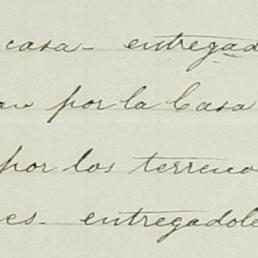 casa- entregad
por la Casa
por los terreno
es- entregadole